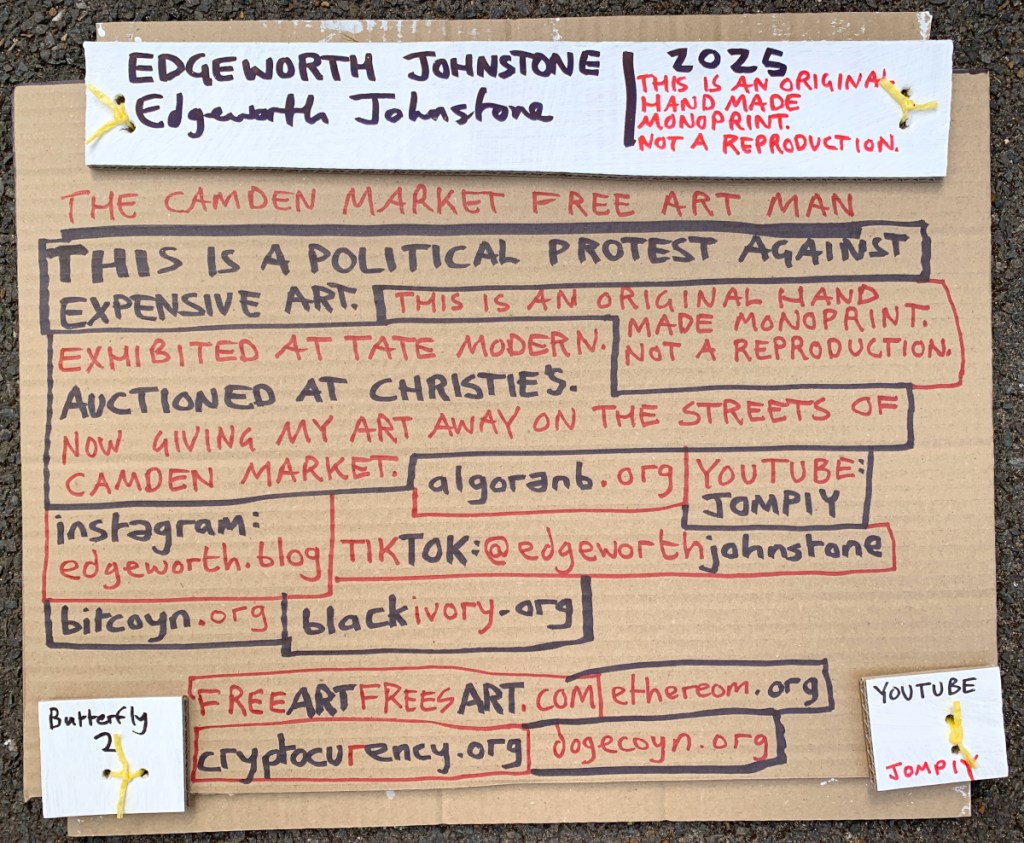 EDGEWORTH JOHNSTONE
Edgeworth Johnstone
2025
THIS IS AN ORIGINAL
HAND MADE
MONOPRINT.
NOT A REPRODUCTION.
THE CAMDEN MARKET FREE ART MAN
THIS IS A POLITICAL PROTEST AGAINST
EXPENSIVE ART.
THIS IS AN ORIGINAL HAND
MADE MONOPRINT.
NOT A REPRODUCTION.
EXHIBITED AT TATE MODERN.
AUCTIONED AT CHRISTIE'S.
NOW GIVING MY ART AWAY ON THE STREETS OF
CAMDEN MARKET.
algoranb.org
YOUTUBE:
JOMPIY
instagram:
edgeworth.blog
TIKTOK:@edgeworthjohnstone
bitcoyn.org
blackivory.org
FREEARTFREESART.COM
ethereom.org
cryptocurency.org
dogecoyn.org
Butterfly
2
YOUTUBE
JOMPIY